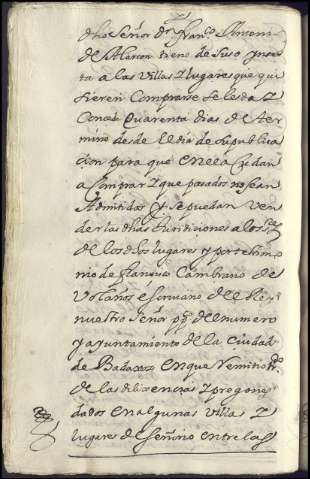 dho señor Dn franco Ximene
de Alarcon treno de suso ynser
ta a las Villas y lugares que qui
sieren Comprarse se les da y
Conçede quarenta dias de ter
mino desde el dia de su publica
cion para que en ella acudan
a Comprar y que pasados no sean
Admitidas y se puedan ven
der las dhas Jurisdiciones a los
de los dhos lugares y por testimo
nio de
Bolaños escriuano del Rey
nuestro Señor ppco del numero
y ayuntamiento de la ciudad
de Badaxoz en que Remitio
de las dilixencias y pregones
dados en algunas Villas y
lugares de entre las